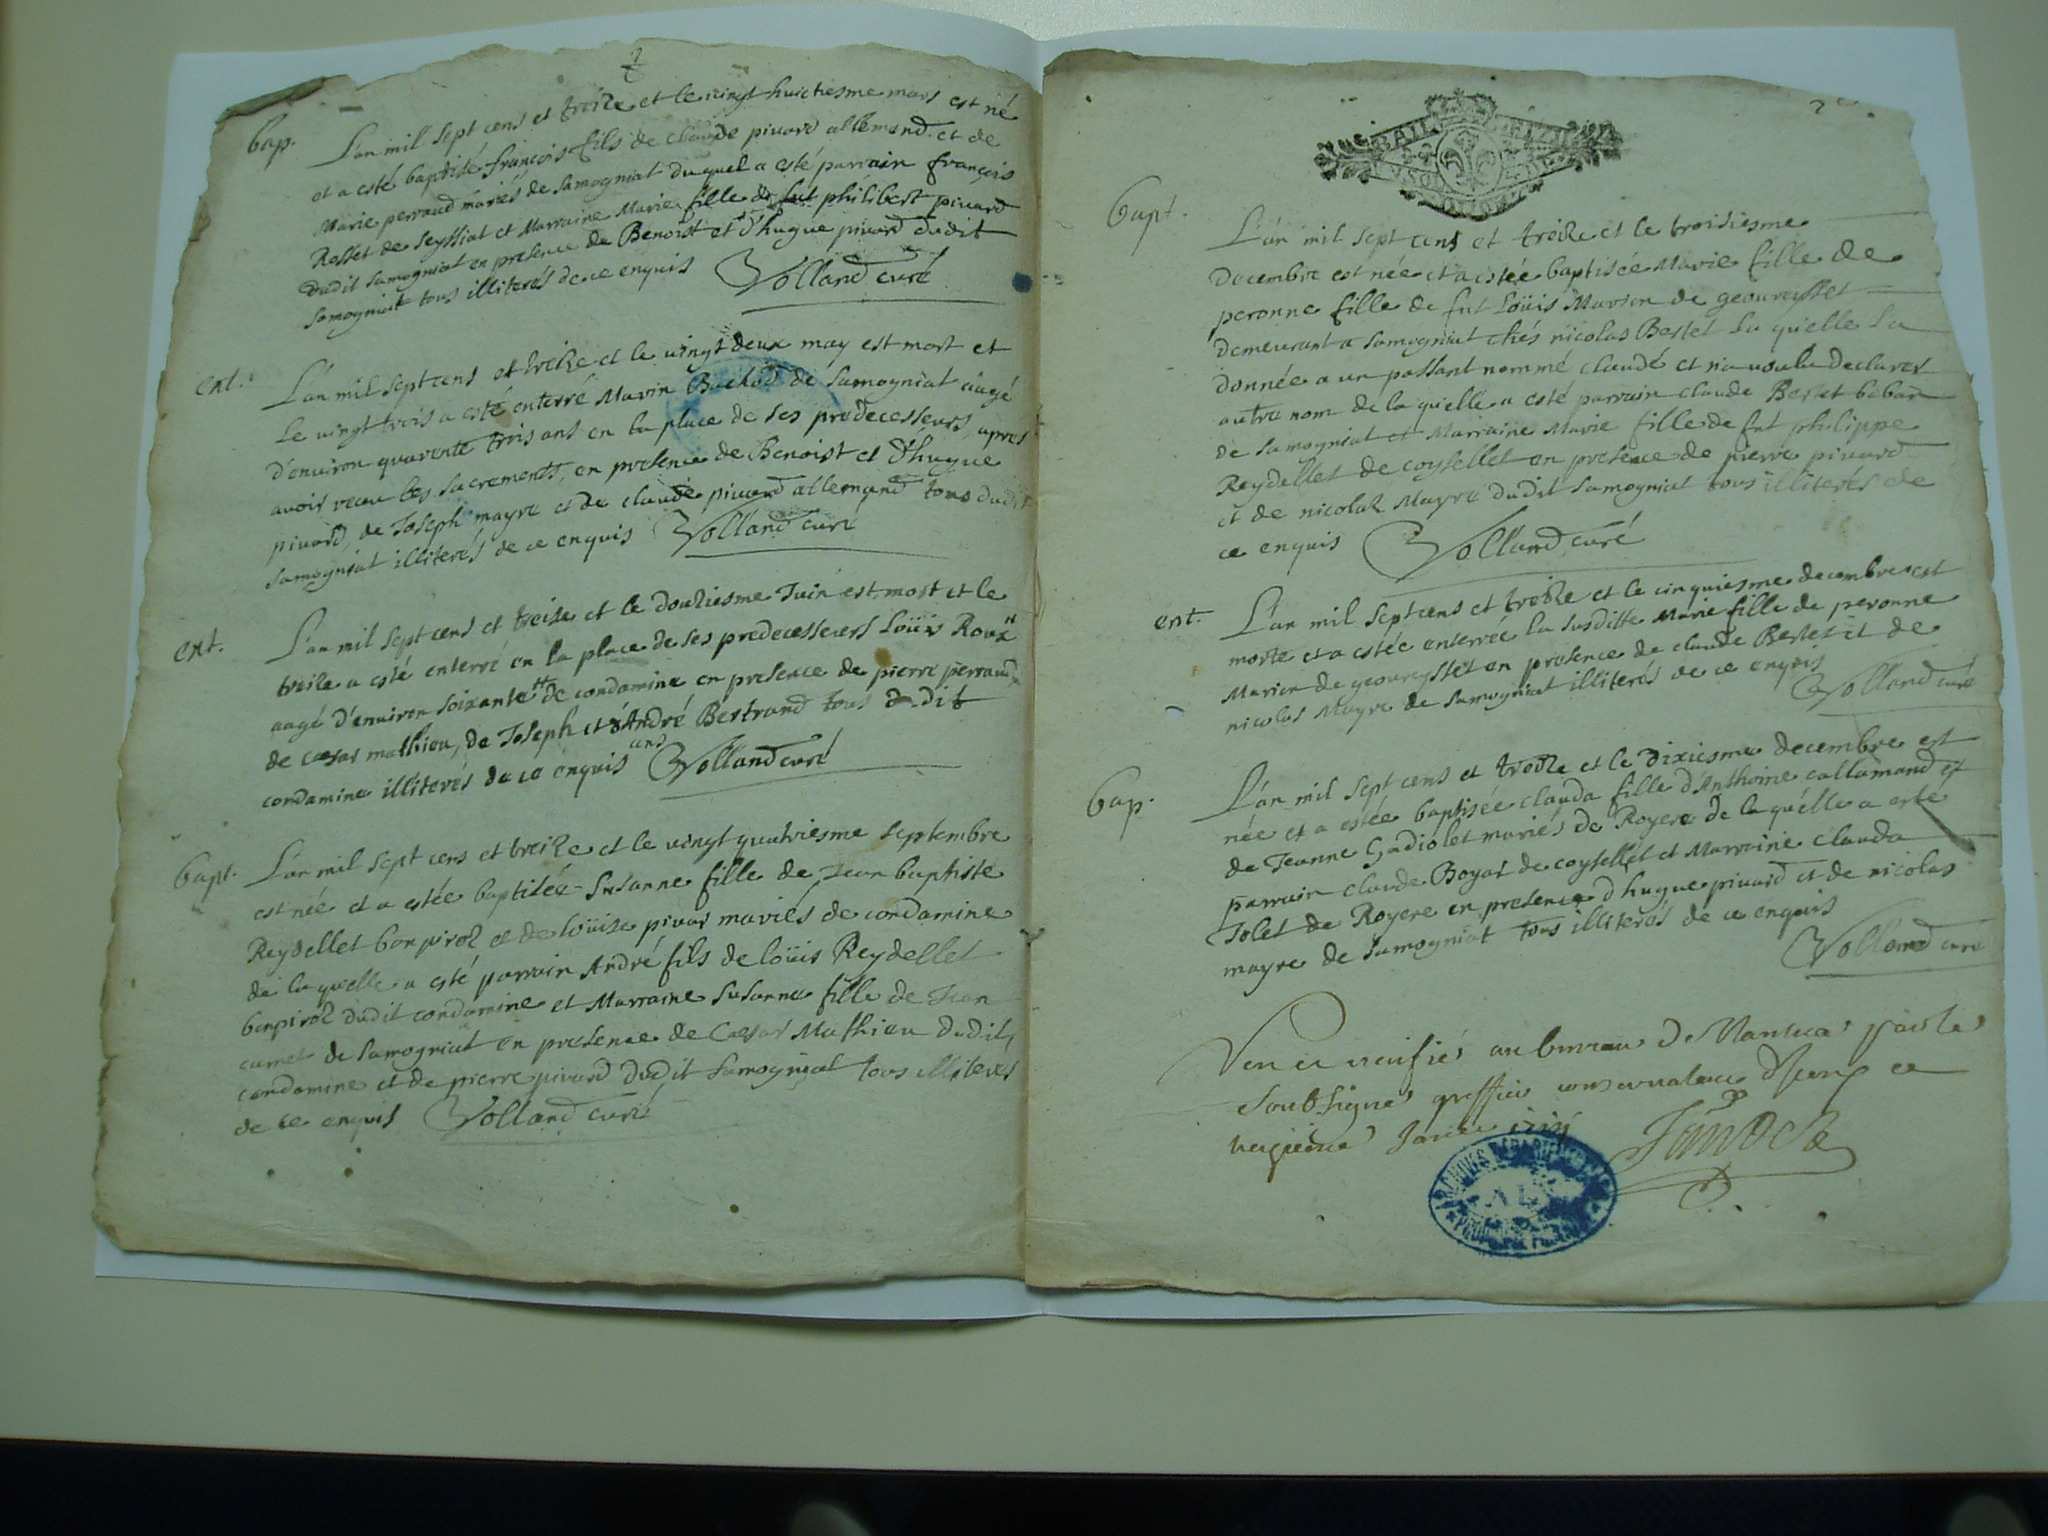 2
bap.
L'an mil sept cens et treize et le vingt huictiesme mars est né
et a esté baptisé françois fils de claude pivard allemand et de
Marie perraud mariés de Samogniat duquel a esté parrain françois
Rosset de Seyssiat et Marraine Marie fille de fut philibert pivard
dudit Samogniat en presence de Benoist et d'hugue pivard dudit
Samogniat tous illiterés de ce enquis Volland curé
ent.
L'an mil sept cens et treize et le vingt deux may est mort et
le vingt trois a esté enterré Marin de Samogniat aagé
d'environ quarente trois ans en la place de ses predecesseurs, apres
avoir receu les sacrements, en presence de Benoist et d'hugue
pivard, de Joseph mayre et de claude pivard allemand tous dudit
Samogniat illiterés de ce enquis Volland curé
ent.
L'an mil sept cens et treize et le douziesme Juin est mort et le
treize a esté enterré en la place de ses predecesseurs Loüis
aagé d'environ soixante de condamine en presence de pierre perraud
ans
de Cæsar mathieu, de Joseph et d'André Bertrand tous dudit
condamine illiterés de ce enquis Volland curé
bapt.
L'an mil sept cens et treize et le vingt quatriesme septembre
est née et a estée baptisée Susanne fille de Jean baptiste
Reydellet bonpiroz et de loüise pivar mariés de condamine
de la quelle a esté parrain André fils de loüis Reydellet
bonpiroz dudit condamine et Marraine Susanne fille de Jean
de Samogniat en presence de Cæsar Mathieu dudit
condamine et de pierre pivard dudit Samogniat tous illiterés
de ce enquis Volland curé
2
bapt.
L'an mil sept cens et treize et le troisiesme
decembre est née et a estée baptisée Marie fille de
peronne fille de fut Loüis Marion de geovreysset
demeurant a Samogniat chés nicolas Bestet la quelle la
donnée a un passant nommé claude et na voulu declarer
autre nom de la quelle a esté parrain claude Bestet
de Samogniat et Marraine Marie fille de fut philippe
Reydellet de coysellet en presence de pierre pivard
et de nicolaz Mayre dudit Samogniat tous illiterés de
ce enquis Volland curé
ent.
L'an mil sept cens et treize et le cinquiesme decembre est
morte et a estée enterrée la susditte Marie fille de peronne
Marion de geovreysset en presence de claude Bestet et de
nicolas Mayre de Samogniat illiterés de ce enquis
Volland curé
bap.
L'an mil sept cens et treize et le dixiesme decembre est
née et a estée baptisée clauda fille d'Anthoine callamand et
de Jeanne Gadiolet mariés de Royere de la quelle a esté
parrain claude Boyat de coysellet et Marraine clauda
Jolet de Royere en presence d'hugue pivard et de nicolas
mayre de Samogniat tous illiterés de ce enquis
Volland curé
Veu et verifié au bureau de Nantua par le
soubsigné greffier conservateur
Janvier
ARCHIVES DEPARTEMENTALES